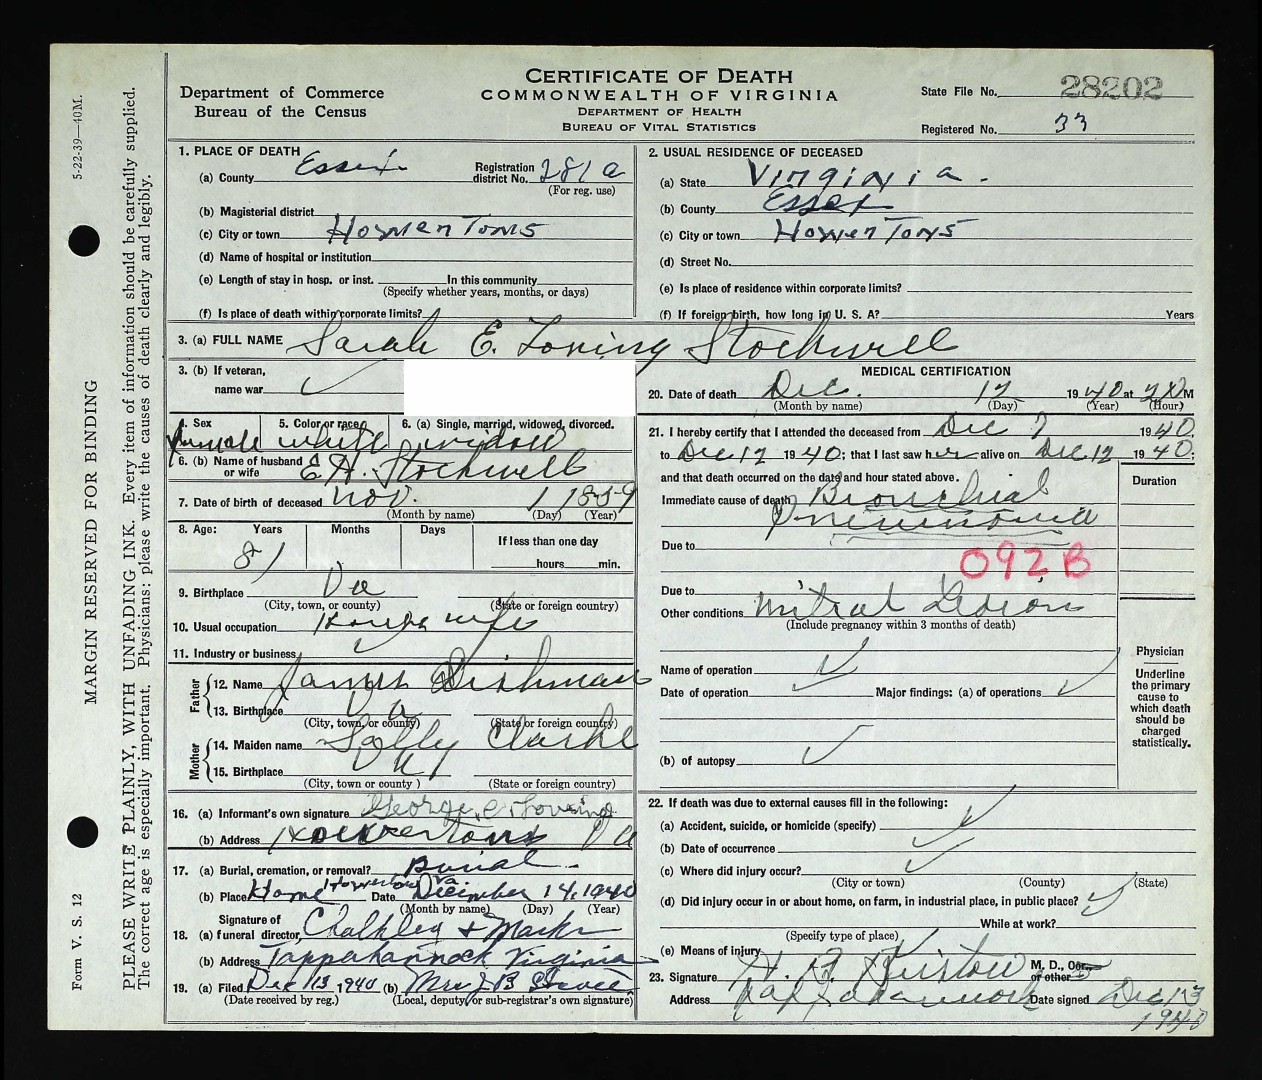 5-22-39—40M.
MARGIN RESERVED FOR BINDING
Form V. S. 12
PLEASE WRITE PLAINLY, WITH UNFADING INK. Every item of information should be carefully supplied.
The correct age is especially important. Physicians: please write the causes of death clearly and legibly.
CERTIFICATE OF DEATH
Department of Commerce
Bureau of the Census
COMMONWEALTH OF VIRGINIA
DEPARTMENT OF HEALTH
BUREAU OF VITAL STATISTICS
State File No. 28202
Registered No. 33
1. PLACE OF DEATH
(a) County Essex Registration district No. 281a
(For reg. use)
(b) Magisterial district
(c) City or town Howertons
(d) Name of hospital or institution
(e) Length of stay in hosp. or inst. In this community
(Specify whether years, months, or days)
(f) Is place of death within corporate limits?
2. USUAL RESIDENCE OF DECEASED
(a) State Virginia.
(b) County Essex
(c) City or town Howertons
(d) Street No.
(e) Is place of residence within corporate limits?
(f) If foreign birth, how long in U. S. A? Years
3. (a) FULL NAME Sarah E. Loving Stockwell
3. (b) If veteran,
name war
4. Sex 5. Color or race 6. (a) Single, married, widowed, divorced.
female white widow
6. (b) Name of husband or wife E H. Stockwell
7. Date of birth of deceased Nov. 1 1859
(Month by name) (Day) (Year)
8. Age: Years Months Days
If less than one day
81 hours min.
9. Birthplace Va
(City, town, or county) (State or foreign country)
10. Usual occupation House wife
11. Industry or business
Father
12. Name James Dishman
13. Birthplace Va
(City, town, or county) (State or foreign country)
Mother
14. Maiden name Sally Clarke
15. Birthplace Va
(City, town or county ) (State or foreign country)
16. (a) Informant's own signature George Loving
(b) Address Howertons Va
17. (a) Burial, cremation, or removal? Burial
(b) Place Home Howertons Va. Date December 14, 1940
(Month by name) (Day) (Year)
Signature of
18. (a) funeral director, Chalkley & Marks
(b) Address Tappahannock Virginia
19. (a) Filed Dec 13 1940 (b) Mrs J B
(Date received by reg.) (Local, deputy or sub-registrar's own signature)
MEDICAL CERTIFICATION
20. Date of death Dec. 12 1940 at M
(Month by name) (Day) (Year) (Hour)
21. I hereby certify that I attended the deceased from Dec 7 1940,
to Dec 12 1940; that I last saw her alive on Dec 12 1940;
and that death occurred on the date and hour stated above.
Duration
Immediate cause of death Bronchial
Pneumonia
Due to
092B
Due to
Other conditions Mitral Lesion
(Include pregnancy within 3 months of death)
Name of operation
Date of operation Major findings: (a) of operations
(b) of autopsy
Physician
Underline the primary cause to which death should be charged statistically.
22. If death was due to external causes fill in the following:
(a) Accident, suicide, or homicide (specify)
(b) Date of occurrence
(c) Where did injury occur?
(City or town) (County) (State)
(d) Did injury occur in or about home, on farm, in industrial place, in public place?
While at work?
(Specify type of place)
(e) Means of injury
23. Signature M. D., or other
Address Tappahannock Date signed Dec 13
1940